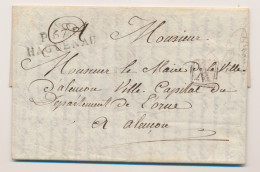 P
HAGUENAU
A Monsieur
Monsieur le Maire de la Ville
d'alencon Ville Capital du
Departement de Lorne
a alencon